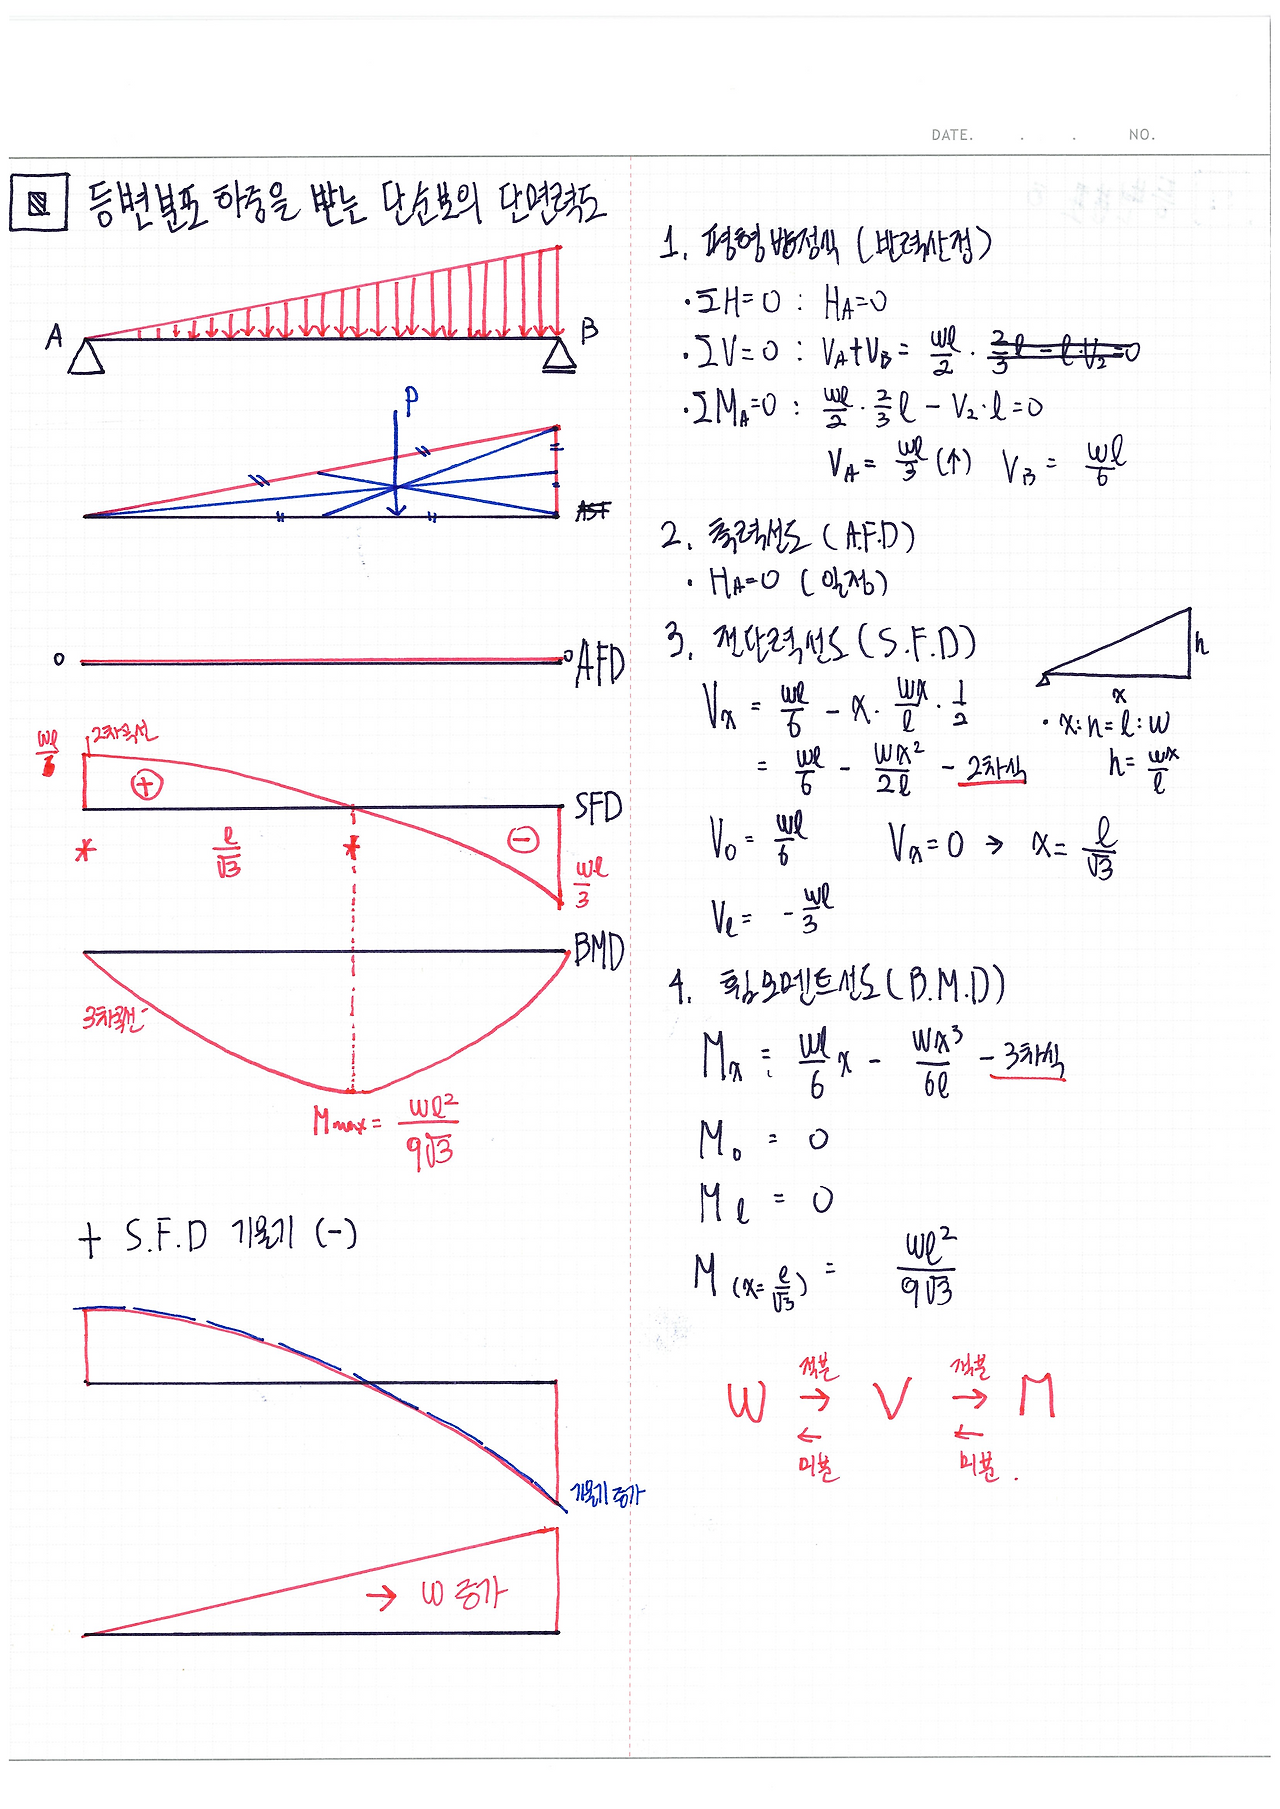 DATE. . . NO.
등변분포 하중을 받는 단순보의 단면력도
A
B
P
0
0 AFD
wl/
2차곡선
+
SFD
l/√3
-
wl/3
BMD
3차곡선
Mmax = wl²/9√3
+ S.F.D 기울기 (-)
기울기 증가
→ w 증가
1. 평형방정식 (반력산정)
· ΣH=0 : HA=0
· ΣV=0 : VA+VB = wl/2 ·
· ΣMA=0 : wl/2 · 2/3 l - V2·l=0
VA = wl/3 (↑) VB = wl/6
2. 축력선도 (A.F.D)
· HA=0 (일정)
3. 전단력선도 (S.F.D)
Vx = wl/6 - x · wx/l · 1/2
= wl/6 - wx²/2l - 2차식
V0 = wl/6 Vx=0 → x= l/√3
Vl = - wl/3
h
x
· x:h=l:w
h= wx/l
4. 휨모멘트선도 (B.M.D)
Mx = wl/6 x - wx³/6l - 3차식
M0 = 0
Ml = 0
M (x= l/√3) = wl²/9√3
적분 적분
W → V → M
← ←
미분 미분.